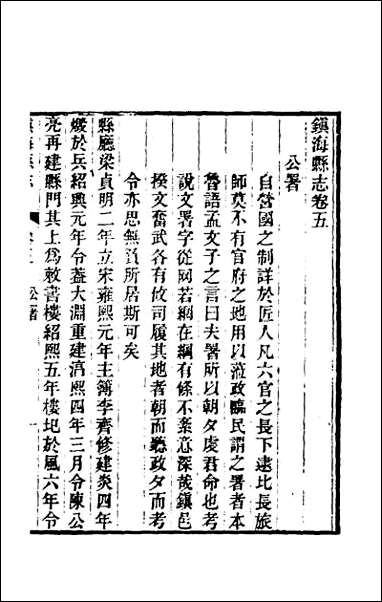 鎮海縣志卷五
公署
自營國之制詳於匠人凡六官之長下逮比長旅
師莫不有官府之地用以涖政臨民謂之署者本
魯語孟文子之言曰夫署所以朝夕虔君命也考
說文署字從网若網在綱有條不紊意深哉鎮邑
揆文奮武各有攸司履其地者朝而聽政夕而考
令亦思無負所居斯可矣
縣廳梁貞明二年立宋雍熙元年主簿李齊修建炎四年
燬於兵紹興元年令蓋大淵重建淳熙四年三月令陳公
亮再建縣門其上爲敕書樓紹熙五年樓圮於風六年令
公署
一